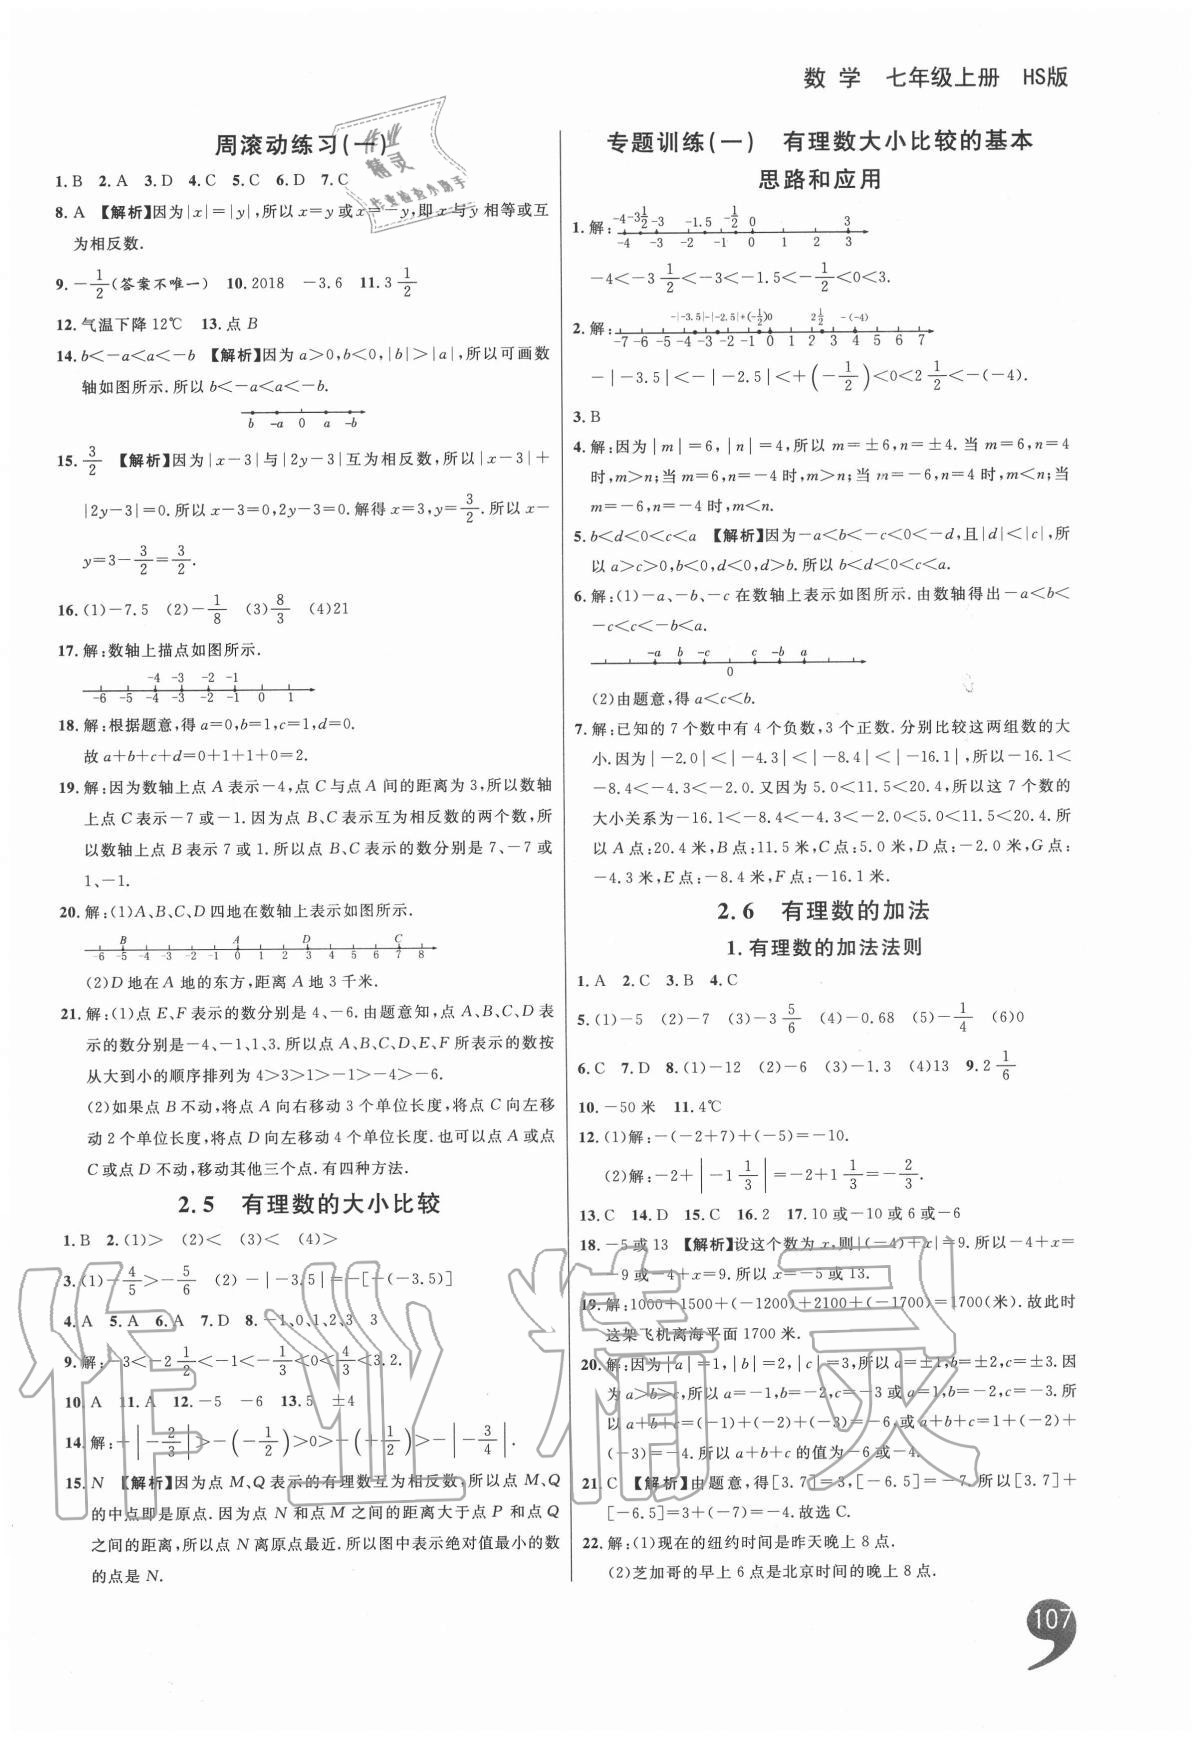 数 学 七年级上册 HS版
周滚动练习(一)
1.B 2.A 3.D 4.C 5.C 6.D 7.C
8.A 【解析】因为|x|=|y|,所以x=y或x=-y,即x与y相等或互
为相反数.
9.-1/2(答案不唯一) 10.2018 -3.6 11.3 1/2
12.气温下降12℃ 13.点B
14.b<-a<a<-b 【解析】因为a>0,b<0,|b|>|a|,所以可画数
轴如图所示.所以b<-a<a<-b.
b -a 0 a -b
15.3/2 【解析】因为|x-3|与|2y-3|互为相反数,所以|x-3|+
|2y-3|=0.所以x-3=0,2y-3=0.解得x=3,y=3/2.所以x-
y=3-3/2=3/2.
16.(1)-7.5 (2)-1/8 (3)8/3 (4)21
17.解:数轴上描点如图所示.
-4 -3 -2 -1
-6 -5 -4 -3 -2 -1 0 1
18.解:根据题意,得a=0,b=1,c=1,d=0.
故a+b+c+d=0+1+1+0=2.
19.解:因为数轴上点A表示-4,点C与点A间的距离为3,所以数轴
上点C表示-7或-1.因为点B、C表示互为相反数的两个数,所
以数轴上点B表示7或1.所以点B、C表示的数分别是7、-7或
1、-1.
20.解:(1)A、B、C、D四地在数轴上表示如图所示.
B A D C
-6 -5 -4 -3 -2 -1 0 1 2 3 4 5 6 7 8
(2)D地在A地的东方,距离A地3千米.
21.解:(1)点E、F表示的数分别是4、-6.由题意知,点A、B、C、D表
示的数分别是-4、-1、1、3.所以点A、B、C、D、E、F所表示的数按
从大到小的顺序排列为4>3>1>-1>-4>-6.
(2)如果点B不动,将点A向右移动3个单位长度,将点C向左移
动2个单位长度,将点D向左移动4个单位长度.也可以点A或点
C或点D不动,移动其他三个点.有四种方法.
2.5 有理数的大小比较
1.B 2.(1)> (2)< (3)< (4)>
3.(1)-4/5>-5/6 (2)-|-3.5|=-[-(-3.5)]
4.A 5.A 6.A 7.D 8.-1、0、1、2、3 3
9.解:-3<-2 1/2<-1<-1/3<0<4/3<3.2.
10.A 11.A 12.-5 -6 13.5 ±4
14.解:+|-2/3|>-(-1/2)>0>-(+1/2)>-|-3/4|.
15.N 【解析】因为点M、Q表示的有理数互为相反数,所以点M、Q
的中点即是原点.因为点N和点M之间的距离大于点P和点Q
之间的距离,所以点N离原点最近.所以图中表示绝对值最小的数
的点是N.
专题训练(一) 有理数大小比较的基本
思路和应用
1.解: -4 -3 1/2 -3 -1.5 -1/2 0 3
-4 -3 -2 -1 0 1 2 3
-4<-3 1/2<-3<-1.5<-1/2<0<3.
-|-3.5| -|-2.5| +(-1/2) 0 2 1/2 -(-4)
2.解: -7 -6 -5 -4 -3 -2 -1 0 1 2 3 4 5 6 7
-|-3.5|<-|-2.5|<+(-1/2)<0<2 1/2<-(-4).
3.B
4.解:因为|m|=6,|n|=4,所以m=±6,n=±4.当m=6,n=4
时,m>n;当m=6,n=-4时,m>n;当m=-6,n=4时,m<n;当
m=-6,n=-4时,m<n.
5.b<d<0<c<a 【解析】因为-a<b<-c<0<-d,且|d|<|c|,所
以a>c>0,b<0,d<0,d>b.所以b<d<0<c<a.
6.解:(1)-a、-b、-c在数轴上表示如图所示.由数轴得出-a<b<
-c<c<-b<a.
-a b -c c -b a
0
(2)由题意,得a<c<b.
7.解:已知的7个数中有4个负数,3个正数.分别比较这两组数的大
小.因为|-2.0|<|-4.3|<|-8.4|<|-16.1|,所以-16.1<
-8.4<-4.3<-2.0.又因为5.0<11.5<20.4,所以这7个数的
大小关系为-16.1<-8.4<-4.3<-2.0<5.0<11.5<20.4.所
以A点:20.4米,B点:11.5米,C点:5.0米,D点:-2.0米,G点:
-4.3米,E点:-8.4米,F点:-16.1米.
2.6 有理数的加法
1.有理数的加法法则
1.A 2.C 3.B 4.C
5.(1)-5 (2)-7 (3)-3 5/6 (4)-0.68 (5)-1/4 (6)0
6.C 7.D 8.(1)-12 (2)-6 (3)-1.3 (4)13 9.2 1/6
10.-50米 11.4℃
12.(1)解:-(-2+7)+(-5)=-10.
(2)解:-2+|-1 1/3|=-2+1 1/3=-2/3.
13.C 14.D 15.C 16.2 17.10或-10或6或-6
18.-5或13 【解析】设这个数为x,则|(-4)+x|=9.所以-4+x=
-9或-4+x=9.所以x=-5或13.
19.解:1000+1500+(-1200)+2100+(-1700)=1700(米).故此时
这架飞机离海平面1700米.
20.解:因为|a|=1,|b|=2,|c|=3,所以a=±1,b=±2,c=±3.因
为a>b>c,所以a=-1,b=-2,c=-3或a=1,b=-2,c=-3.所
以a+b+c=(-1)+(-2)+(-3)=-6或a+b+c=1+(-2)+
(-3)=-4.所以a+b+c的值为-6或-4.
21.C 【解析】由题意,得[3.7]=3,[-6.5]=-7.所以[3.7]+
[-6.5]=3+(-7)=-4.故选C.
22.解:(1)现在的纽约时间是昨天晚上8点.
(2)芝加哥的早上6点是北京时间的晚上8点.
107
作业精灵
作业
精灵
作业检查小助手